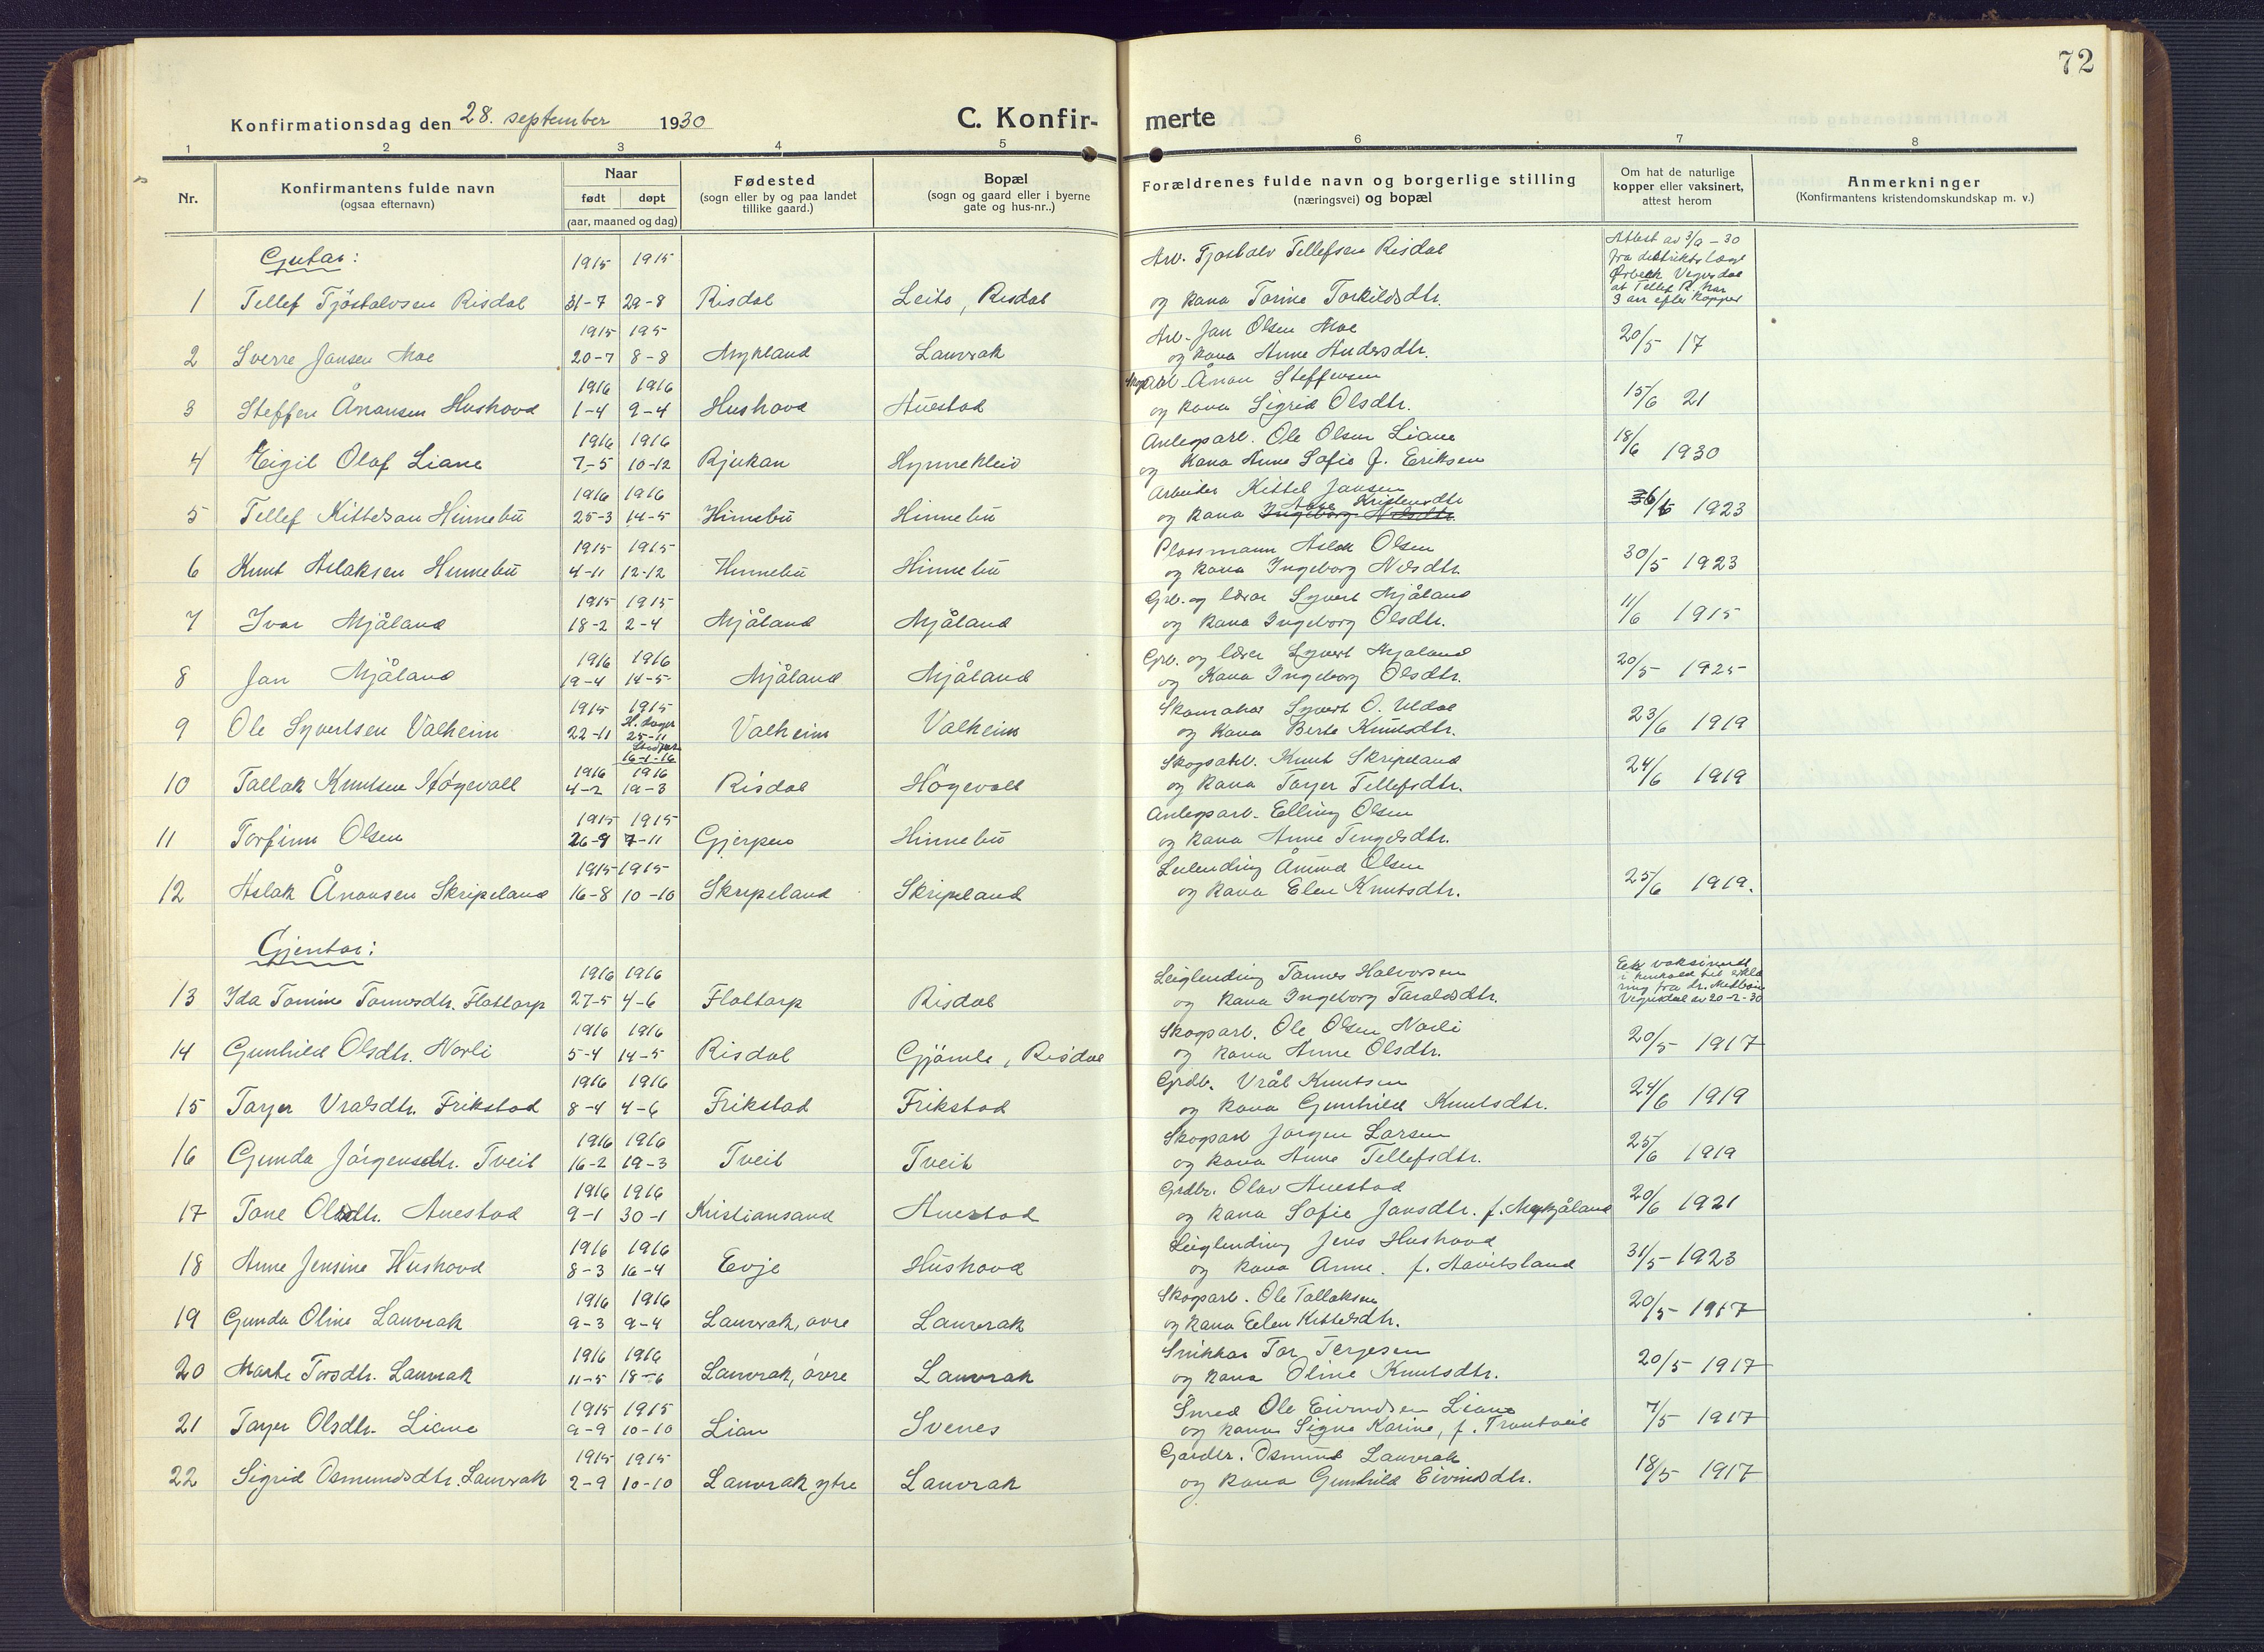 72
Konfirmationsdag den 28. september 1930
C. Konfir-
merte
1 2 3 4 5 6 7 8
Nr.
Konfirmantens fulde navn
(ogsaa efternavn)
Naar
født døpt
(aar, maaned og dag)
Fødested
(sogn eller by og paa landet
tillike gaard.)
Bopæl
(sogn og gaard eller i byerne
gate og hus-nr..)
Forældrenes fulde navn og borgerlige stilling
(næringsvei) og bopæl
Om hat de naturlige
kopper eller vaksinert,
attest herom
Anmerkninger
(Konfirmantens kristendomskundskap m. v.)
Gutar:
1915 1915 Arb. Tjostolv Tellefsen Risdal Attest av 3/9-30
fra distriktslæge
Vegusdal
at Tellef R. har
3 arr efter kopper
1 Tellef Tjöstolvsen Risdal 31-7 29-8 Risdal Leite, Risdal og kona Torine Torkildsdtr.
1915 195 Arb. Jan Olsen Moe
2 Sverre Jansen Moe 20-7 8-8 Mykland Lauvrak og kona Anne Andersdtr. 20/5 17
1916 1916 Skogarb. Ånon Steffensen
3 Steffen Ånonsen Hushovd 1-4 9-4 Hushovd Auestad og kona Sigrid Olsdtr. 15/6 21
1916 1916 Anlegsarb. Ole Olsen Liane
4 Eigil Olaf Liane 7-5 10-12 Rjukan Hynnekleiv og kona Anne Sofie f. Eriksen 18/6 1930
1916 1916 Arbeider Kittel Jansen
5 Tellef Kittelsen Hinnebu 25-3 14-5 Hinnebu Hinnebu og kona Ingeborg Nilsdtr. Aase Kristensdtr 1923
1915 1915 Plassmann Aslak Olsen
6 Knut Aslaksen Hinnebu 4-11 12-12 Hinnebu Hinnebu og kona Ingeborg Nilsdtr. 30/5 1923
1915 1915 Grb. og lærer Syvert Mjåland
7 Ivar Mjåland 18-2 2-4 Mjåland Mjåland og kona Ingeborg Olsdtr. 11/6 1915
1916 1916 Grb. og lærer Syvert Mjåland
8 Jan Mjåland 19-4 14-5 Mjåland Mjåland og kona Ingeborg Olsdtr. 20/5 1925
1915 1915 Skomaker Syvert O. Uldal
9 Ole Syvertsen Valheim 22-11 25-11 Valheim Valheim og kona Berte Knutsdtr. 23/6 1919
16-1-16
1916 1916 Skogsarb. Knut Skripeland
10 Tallak Knutsen Høgevoll 4-2 19-3 Risdal Høgevoll og kona Torjer Tellefsdtr. 24/6 1919
1915 1915 Anlegsarb. Elling Olsen
11 Torfinn Olsen 26-9 7-11 Gjerpen Hinnebu og kona Anne Tengelsdtr.
1915 1915 Leilending Ånund Olsen
12 Aslak Ånonsen Skripeland 16-8 10-10 Skripeland Skripeland og kona Elen Knutsdtr. 25/6 1919.
Gjentor:
1916 1916 Leiglending Tomes Halvorsen Eik vaksinert
i henhold til erklæ
ring fra dr.
Vegusdal av 20-2-30
13 Ida Tomine Tomesdtr. Flottorp 27-5 4-6 Flottorp Risdal og kona Ingeborg Taraldsdtr.
1916 1916 Skogsarb. Ole Olsen Norli
14 Gunhild Olsdtr. Norli 5-4 14-5 Risdal Gjömle, Risdal og kona Anne Olsdtr. 20/5 1917
1916 1916 Grdb. Vrål Knutsen
15 Torjer Vralsdtr. Frikstad 8-4 4-6 Frikstad Frikstad og kona Gunhild Knutsdtr. 24/6 1919
1916 1916 Skogsarb Jörgen Larsen
16 Gunda Jörgensdtr. Tveit 16-2 19-3 Tveit Tveit og kona Anne Tellefsdtr. 25/6 1919
1916 1916 Grdbr. Olav Auestad
17 Tone Olsdtr. Auestad 9-1 30-1 Kristiansand Auestad og kona Sofie Jansdtr. f. Mykjåland 20/6 1921
1916 1916 Leiglending Jens Hushovd
18 Anne Jensine Hushovd 8-3 16-4 Evje Hushovd og kona Anne. f. Havitsland 31/5-1923
1916 1916 Skogsarb. Ole Tallaksen
19 Gunda Oline Lauvrak 9-3 9-4 Lauvrak, øvre Lauvrak og kona Eelen Kittelsdtr. 20/5-1917
1916 1916 Snikkar Tor Terjesen
20 Marte Torsdtr. Lauvrak 11-5 18-6 Lauvrak, øvre Lauvrak og kona Oline Knutsdtr. 20/5-1917
1915 1915 Smed Ole Eivindsen Liane
21 Torjer Olsdtr. Liane 9-9 10-10 Lian Svenes og kona Signe Karine, f. Trontveit 7/5 1917
1915 1915 Gardbr. Osmund Lauvrak
22 Sigrid Osmundsdtr. Lauvrak 2-9 10-10 Lauvrak ytre Lauvrak og kona Gunhild Eivindsdtr. 18/5 1917